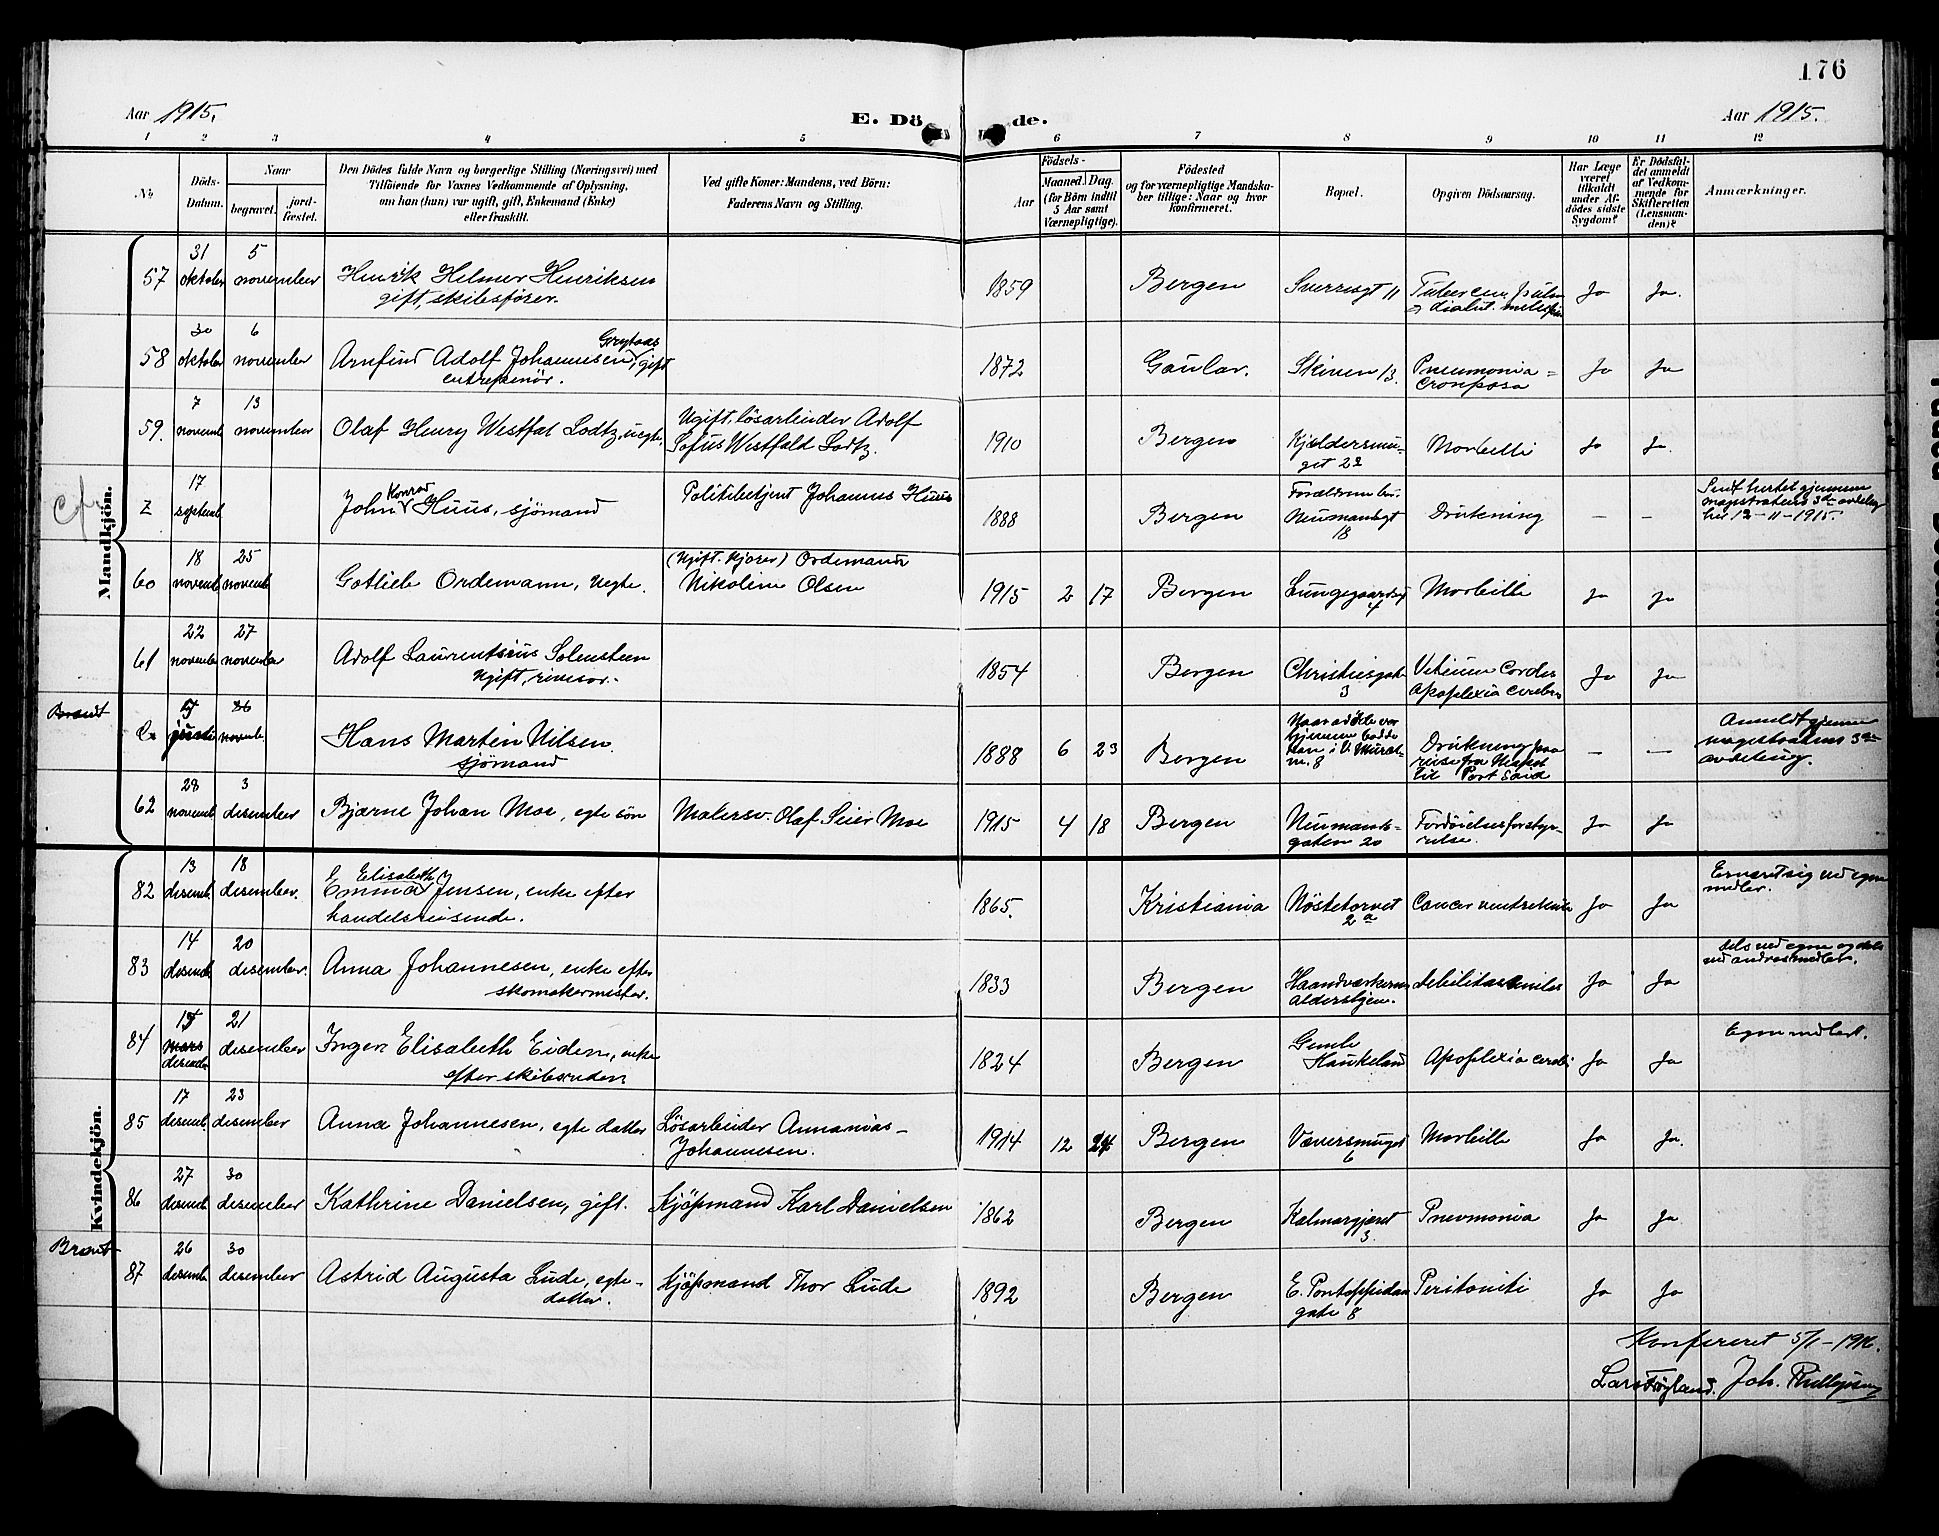 176
Aar 1915.
E. Dö de.
Aar 1915.
1 2 3 4 5 6 7 8 9 10 11 12
No.
Döds-Datum.
Naar
begravet.
jord-fæstet.
Den Dödes fulde Navn og borgerlige Stilling (Næringsvei) med
Tilföiende for Voxnes Vedkommende af Oplysning,
om han (hun) var ugift, gift, Enkemand (Enke)
eller fraskilt.
Ved gifte Koner: Mandens, ved Börn:
Faderens Navn og Stilling.
Födsels-
Aar
Maaned. Dag.
(for Börn indtil
5 Aar samt
Værnepligtige).
Födested
og for værnepligtige Mandska-
ber tillige: Naar og hvor
konfirmeret.
Bopæl.
Opgiven Dödsaarsag.
Har Læge
været
tilkaldt
under Af-
dödes sidste
Sygdom?
Er Dödsfal-
det anmeldt
af Vedkom-
mende for
Skifteretten
(Lensman-
den)?
Anmærkninger.
Mandkjön.
57 31 oktober 5 november Henrik Helmer Henriksen
gift, skibsfører.
1859 Bergen Sverresgt 11 Ja Ja.
58 30 oktober 6 november Arnfind Adolf Johannesen Grytaas, gift
entreprenör.
1872 Gaular. Skiven 13. Pneumonia
Crouposa Ja Ja
59. 7 novemb 13 november Olaf Henry Westfal Lodtz, uegte.
Ugift, lösarbeider Adolf
Sofus Westfald Lodtz.
1910 Bergen Kjeldersmu-
get 22 Morbilli Ja Ja.
Cfr
Z 17 septemb John Konrad Huus, sjömand
Politibetjent Johannes Huus
1888 Bergen Forældrene bor:
Neumannsgt
18 Drukning — —
Sendt hertil gjennem
magistratens 3die avdeling
her 12-11-1915.
60 18 novemb 25 novemb Gotlieb Ordemann, uegte.
(Ugift. Kjører) Ordemann
Nikoline Olsen
1915 2 17 Bergen Lungegaardsgt
4 Morbilli Ja Ja
61 22 novembe 27 november Adolf Laurentsius Solensteen
Ugift, revisor.
1854 Bergen Christiesgate
3 Vitium Cordis
Apoplexia cerebri Ja Ja
Brandt
5 juni 26 novemb. Hans Martin Nilsen.
sjömand
1888 6 23 Bergen
m. 8 Drukning paa
reise fra
til Port Said — —
Anmeldt gjennem
magistratens 3die
avdeling.
62 28 novemb 3 desember Bjarne Johan Moe, egte sön
Malersv. Olaf Seier Moe
1915 4 18 Bergen Neumanns-
gaten 20 Fordöielsesforstyr-
relse. Ja Ja
Kvindekjön.
82 13 desemb. 18 desember. Emma Elisabeth Jensen, enke efter
handelsreisende.
1865. Kristiania Nöstetorvet
2a Cancer ventriculi Ja Ja
Ernæret sig ved egne
midler.
83 14 desemb 20 desember. Anna Johannesen, enke efter
skomakermester.
1833 Bergen Haandværkernes
aldershjem. debilitas senilis Ja Ja
dels ved egne og dels
ved andres midler.
84 15 mars
desember 21 desember Inger Elisabeth Eiden, enke
efter skibsreder.
1824 Bergen Gamle
Haukeland Apoplexia cerebri Ja Ja
Egne midler.
85 17 desemb. 23 desember Anna Johannesen, egte datter
Lösarbeider Annanias
Johannesen.
1914 12 24 Bergen Væversmuget
6 Morbilli Ja Ja.
86 27 desemb. 30 desember Kathrine Danielsen, gift.
Kjöpmand Karl Danielsen
1862 Bergen Kalmargjeret
3. Pneumonia Ja Ja
Brandt
87 26 desemb 30 desember Astrid Augusta Lude, egte
datter.
Kjöpmand Thor Lude
1892 Bergen E. Pontoppidans
gate 8 Peritonitis Ja Ja
Konfereret 5/1-1916.
Lars Frøyland. Joh.